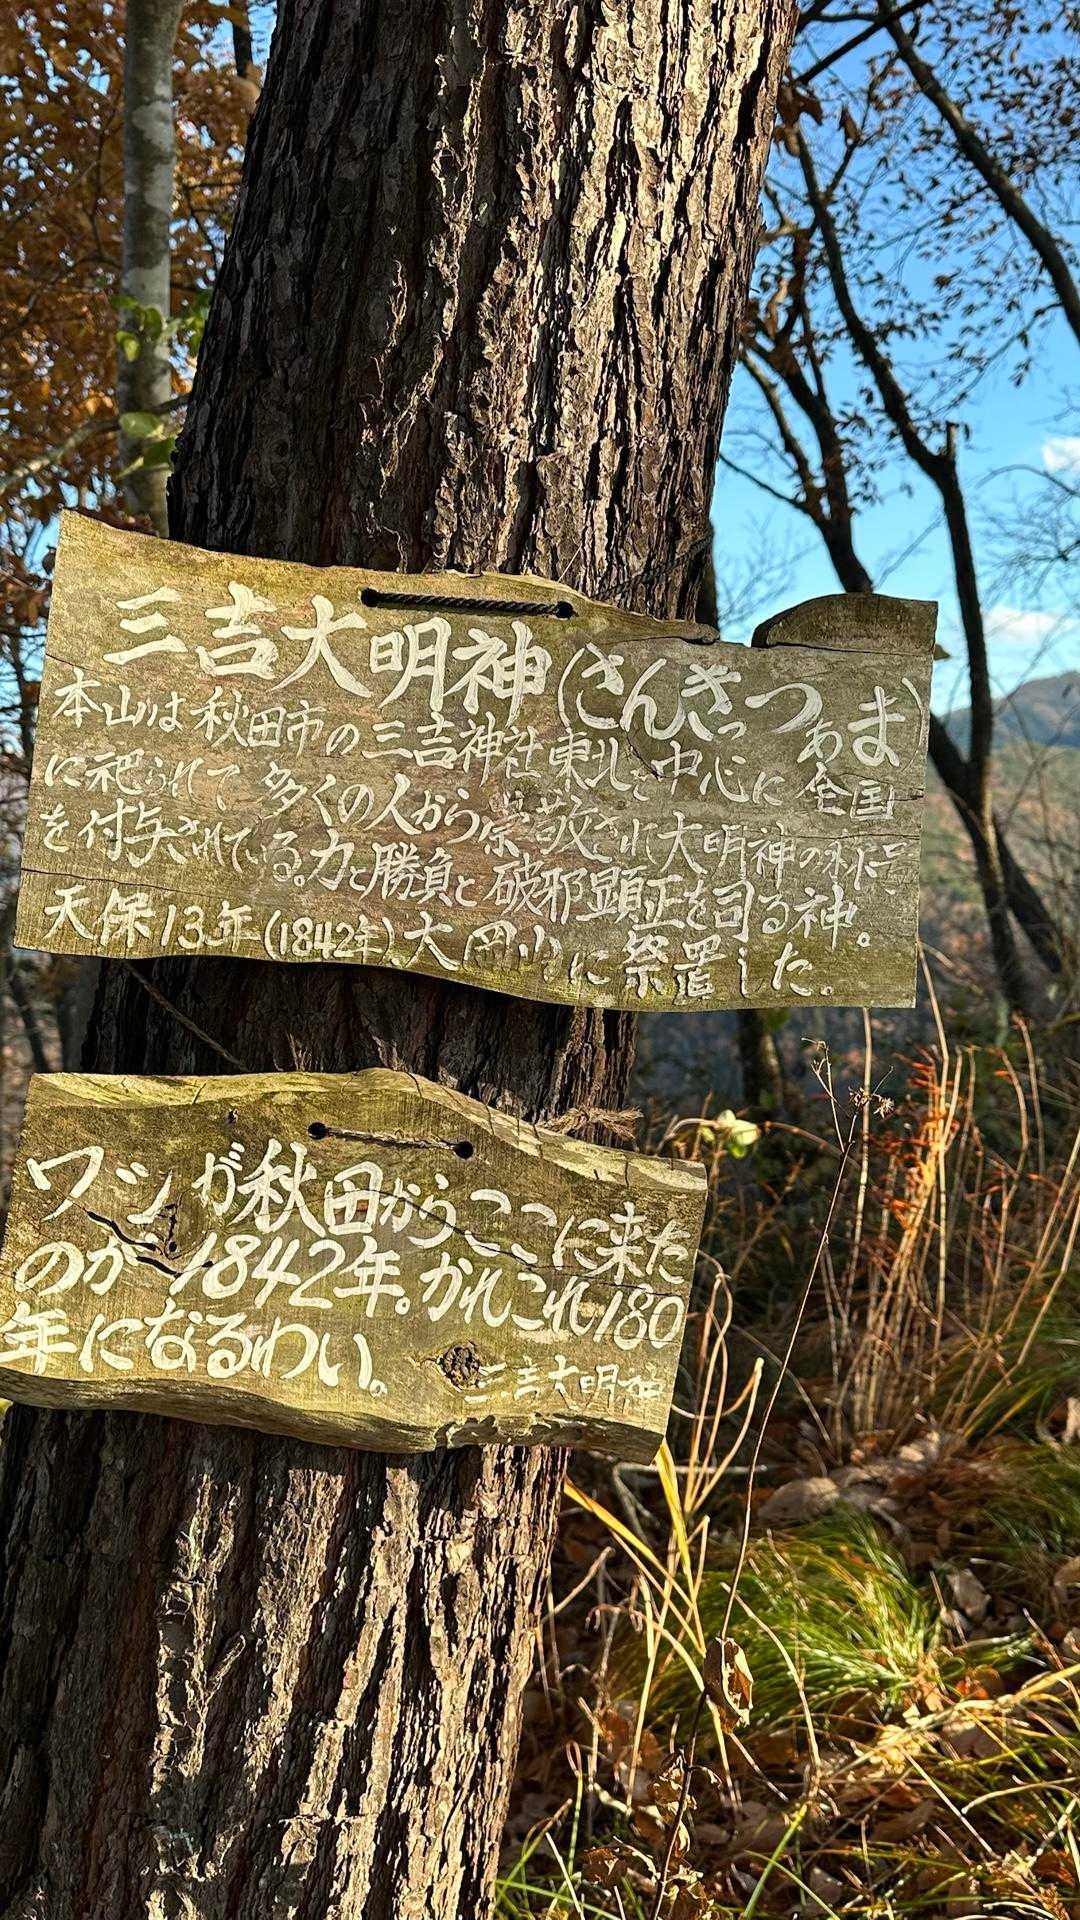 三吉大明神(さんきっつあま)
本山は秋田市の三吉神社 東北を中心に全国
に祀られて 多くの人から崇敬され 大明神の称号
を付与されている。力と勝負と破邪顕正を司る神。
天保13年(1842年)、大岡山に祭置した。
ワシが秋田からここに来た
のが 1842年。かれこれ180
年になるわい。
三吉大明神